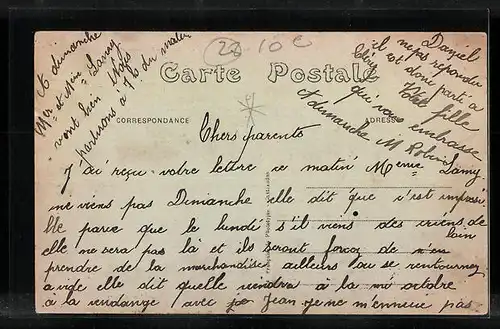 28 10 €
Carte Postale
CORRESPONDANCE
ADRESSE
Chers parents
J'ai reçu votre lettre ce matin Mᵉᵐᵉ Lamy
me viens pas Dimanche elle dit que c'est impossi
ble parce que le lundi s'il viens des clients de loin
elle ne sera pas là et ils seront forcés de
prendre de la marchandise ailleurs ou se retourner
a vide elle dit quelle viendra à la mi octobre
a la vendange avec Jean je ne m'ennuie pas
A dimanche
Mer et Mme Lamy
vont bien Nous
partirons a 7h du matin
Daniel
il ne pas répondu
il est donc parti a
Votre fille
qui vous embrasse
A dimanche M Robin